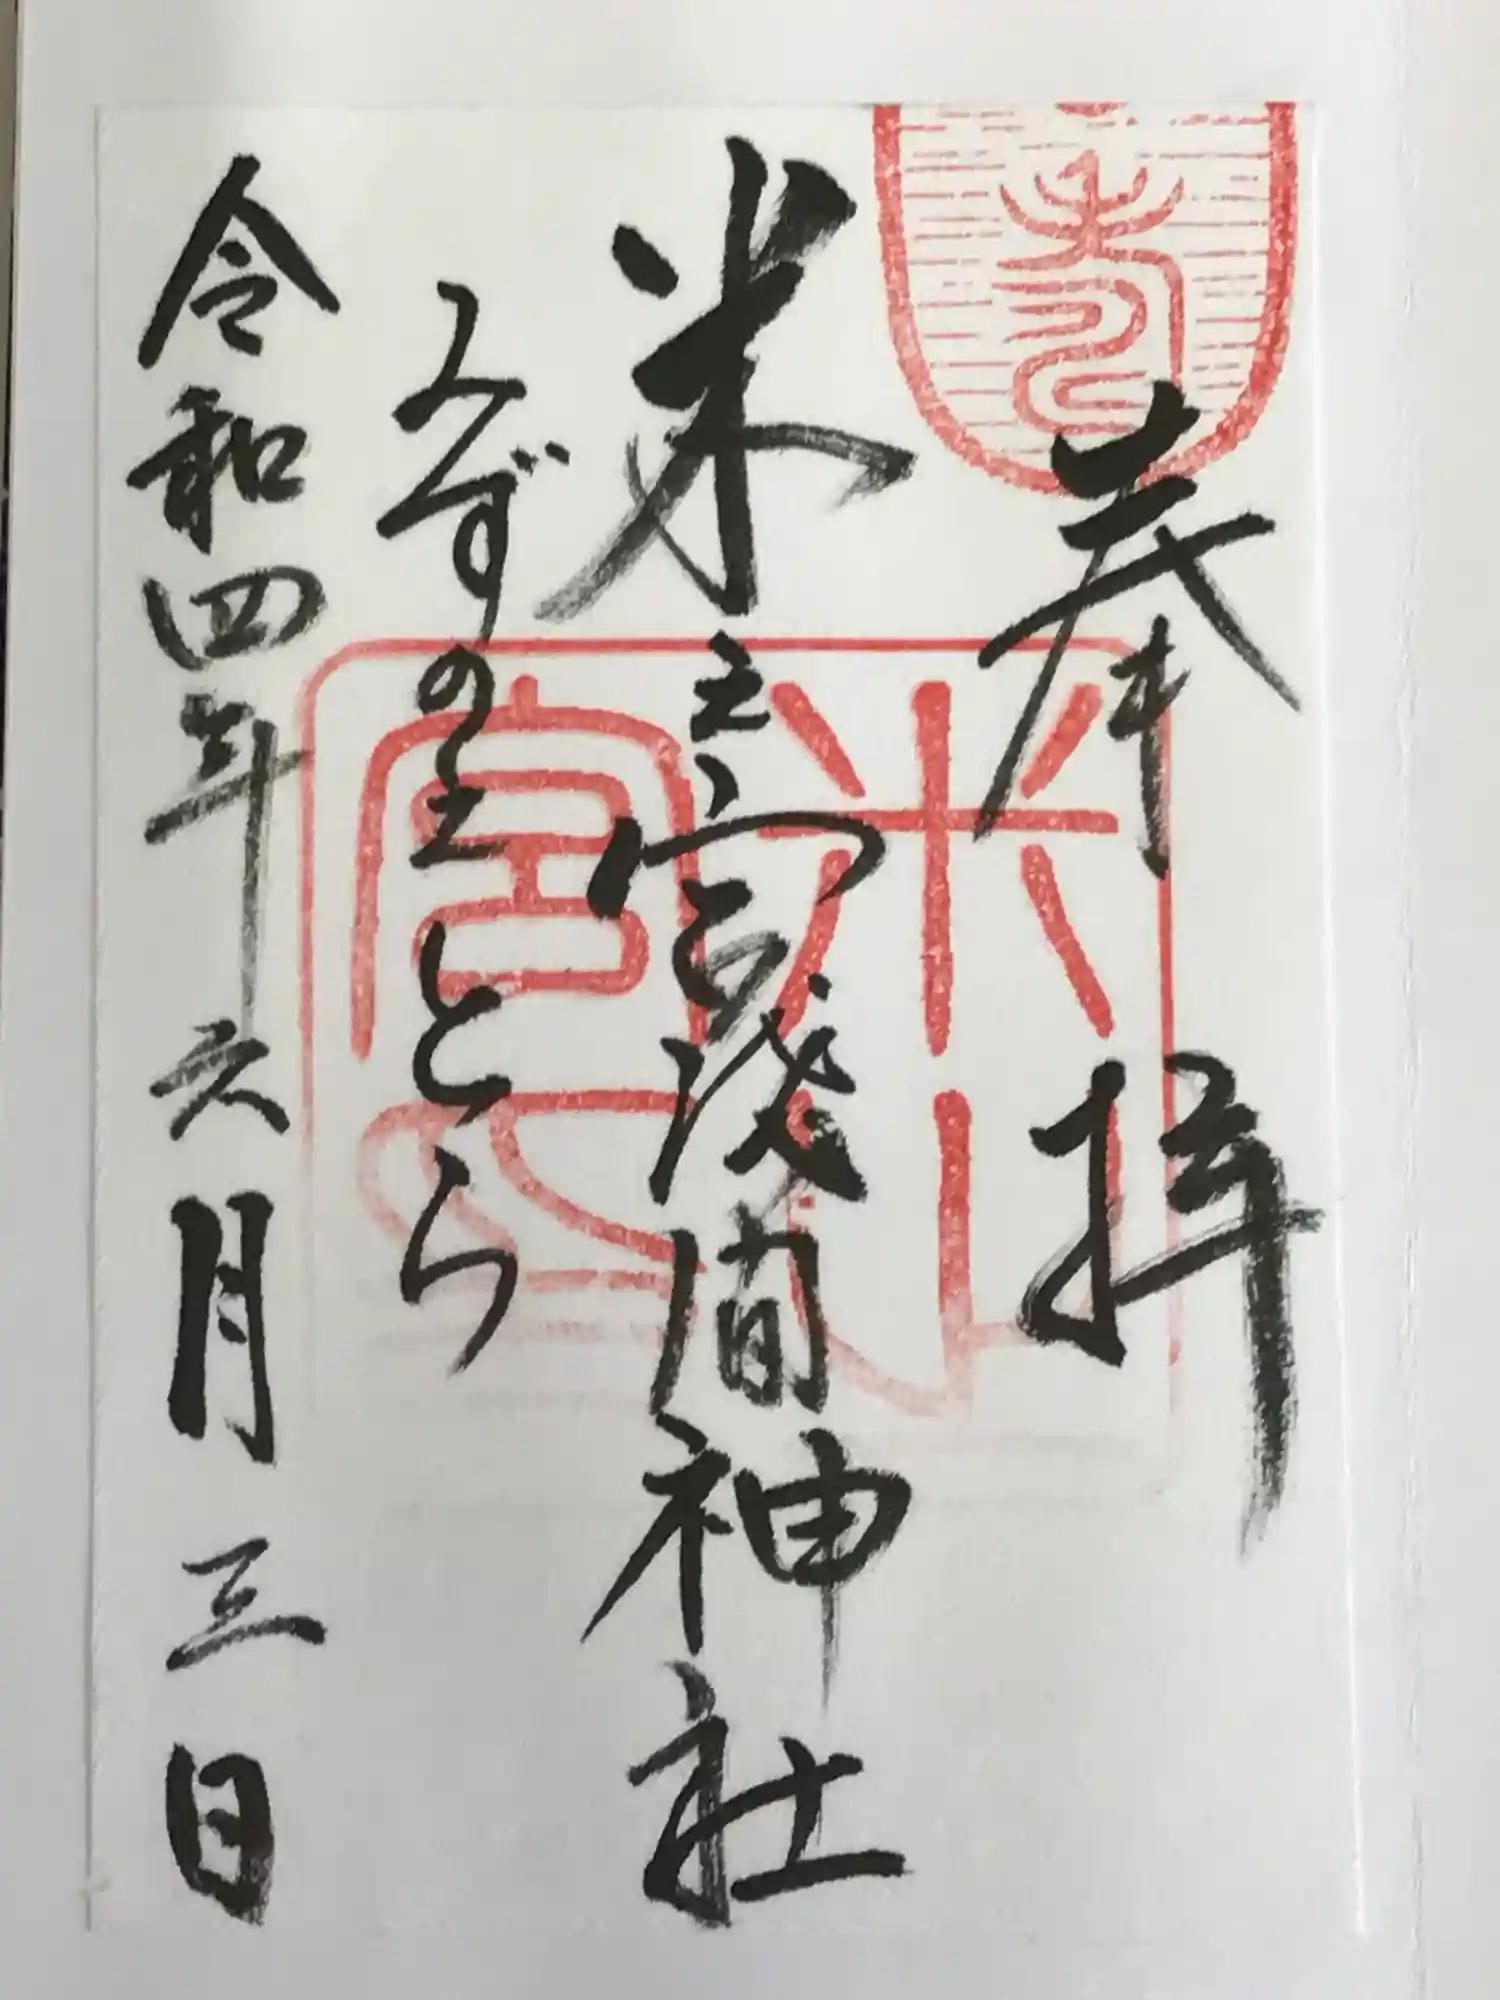 奉拝
米之宮浅間神社
みずのえとら
令和四年六月三日
米
宮